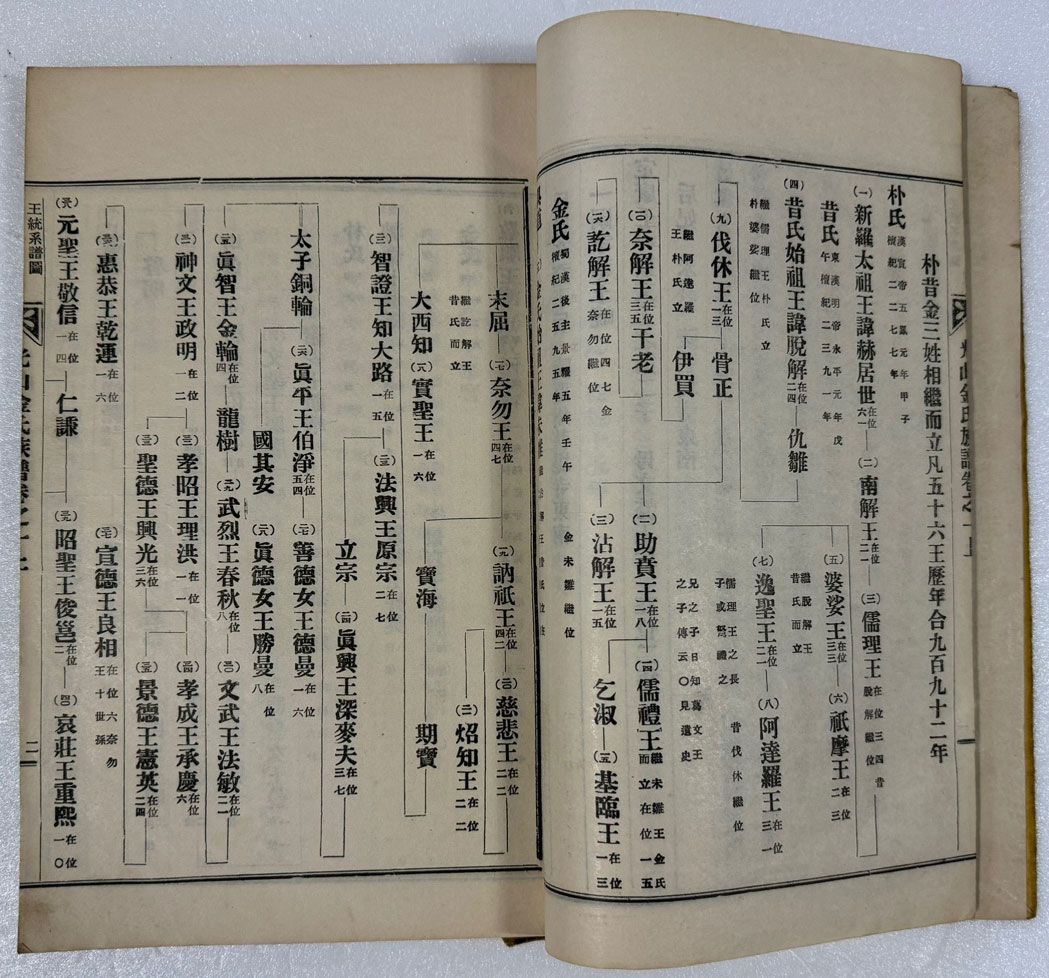 朴昔金三姓相繼而立凡五十六王歷年合九百九十二年
朴氏 漢宣帝五鳳元年甲子 檀紀二二七七年
(一)新羅太祖王諱赫居世 在位六一
(二)南解王 在位二一
(三)儒理王 在位三四 昔脫解繼位
昔氏 東漢明帝永平元年戊午 檀紀二三九一年
(五)婆娑王 在位三三 繼脫解王昔氏而立
(六)祇摩王 在位二三
(四)昔氏始祖王諱脫解 在位二四
仇雛
繼儒理王朴氏立
朴婆娑繼位
(七)逸聖王 在位二一
儒理王之長子或怒禮之
兄之子日知葛文王之子傳云〇見遺史
(八)阿達羅王 在位三一
昔伐休繼位
(九)伐休王 在位一三
繼阿達羅王朴氏立
骨正
伊買
(一〇)奈解王 在位三五
于老
(一一)助賁王 在位一八
(一四)儒禮王 繼未雛王金氏而立在位一五
(一六)訖解王 在位四七 金奈勿繼位
(一二)沾解王 在位一五
乞淑
(一五)基臨王 在位一三
金氏 蜀漢後主景耀五年壬午 檀紀二五九五年
金未雛繼位
末屈
(一七)奈勿王 在位四七
繼訖解王昔氏而立
(一九)訥祇王 在位四二
(二〇)慈悲王 在位二二
(二一)炤知王 在位二二
大西知
(一八)實聖王 在位一六
寶海
期寶
(二二)智證王知大路 在位一五
(二三)法興王原宗 在位二七
立宗
(二四)眞興王深麥夫 在位三七
太子銅輪
(二六)眞平王伯淨 在位五四
(二七)善德女王德曼 在位一六
國其安
(二八)眞德女王勝曼 在位八
(二五)眞智王金輪 在位四
龍樹
(二九)武烈王春秋 在位八
(三〇)文武王法敏 在位二一
(三一)神文王政明 在位一二
(三二)孝昭王理洪 在位一一
(三四)孝成王承慶 在位六
(三三)聖德王興光 在位三六
(三五)景德王憲英 在位二四
(三六)惠恭王乾運 在位一六
(三七)宣德王良相 在位六奈勿王十世孫
(三八)元聖王敬信 在位一四
仁謙
(三九)昭聖王俊邕 在位二
(四〇)哀莊王重熙 在位一〇
王統系譜圖
光山金氏族譜卷之一上
二